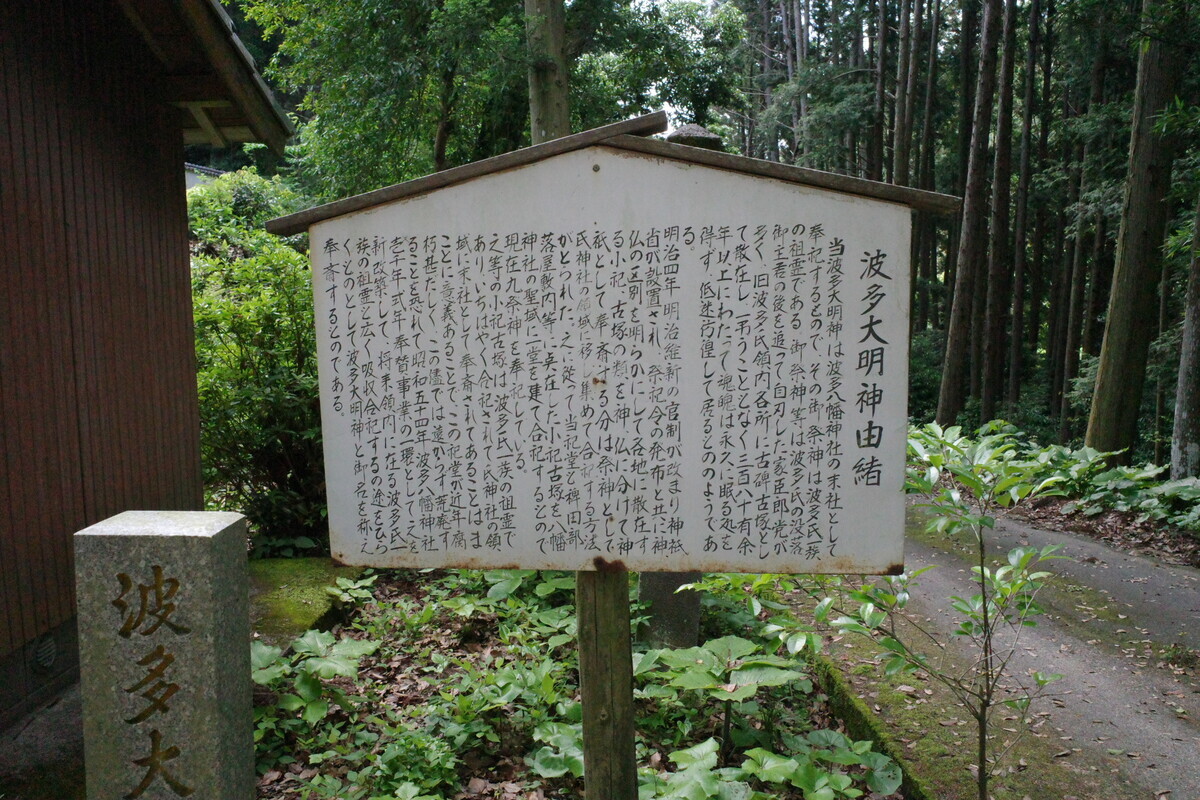 波多大明神由緒
当波多大明神は波多八幡神社の末社として
奉祀するもので、その御祭神は波多氏一族
の祖霊である。御祭神等は波多氏の没落
御主君の後を追って自刃した家臣郎党が
多く、旧波多氏領内各所に古碑古塚とし
て散在し、弔うこともなく三百八十有余
年以上にわたって魂魄は永久に眠る処を
得ず、低迷彷徨して居るもののようであ
る。
明治四年、明治維新の官制が改まり神祇
省が設置され、祭祀令の発布と共に神
仏の区別を明らかにして各地に散在す
る小祀、古塚の類を神、仏に分けて神
祇として奉斎する分は祭神として
氏神社の領域に移し集めて合祀する方法
がとられた。之に従って当祀堂と稗田部
落屋敷内等に点在した小祀古塚を八幡
神社の聖域に一堂を建て合祀するもので
現在九祭神を奉祀している。
之等の小祀古塚は波多氏一族の祖霊で
あり、いちはやく合祀されて氏神社の領
域に末社として奉斎されてあることはま
ことに意義あることで、この祀堂が近年腐
朽甚だしく、この儘では遠からず荒廃す
ることを恐れて昭和五十四年、波多八幡神社
壱千年式年奉替事業の一環としてこれを
新改築して、将来領内に在る波多氏一
族の祖霊を広く吸収合祀するの途をひら
くものとして波多大明神と御名を称え
奉斎するものである。
波多大